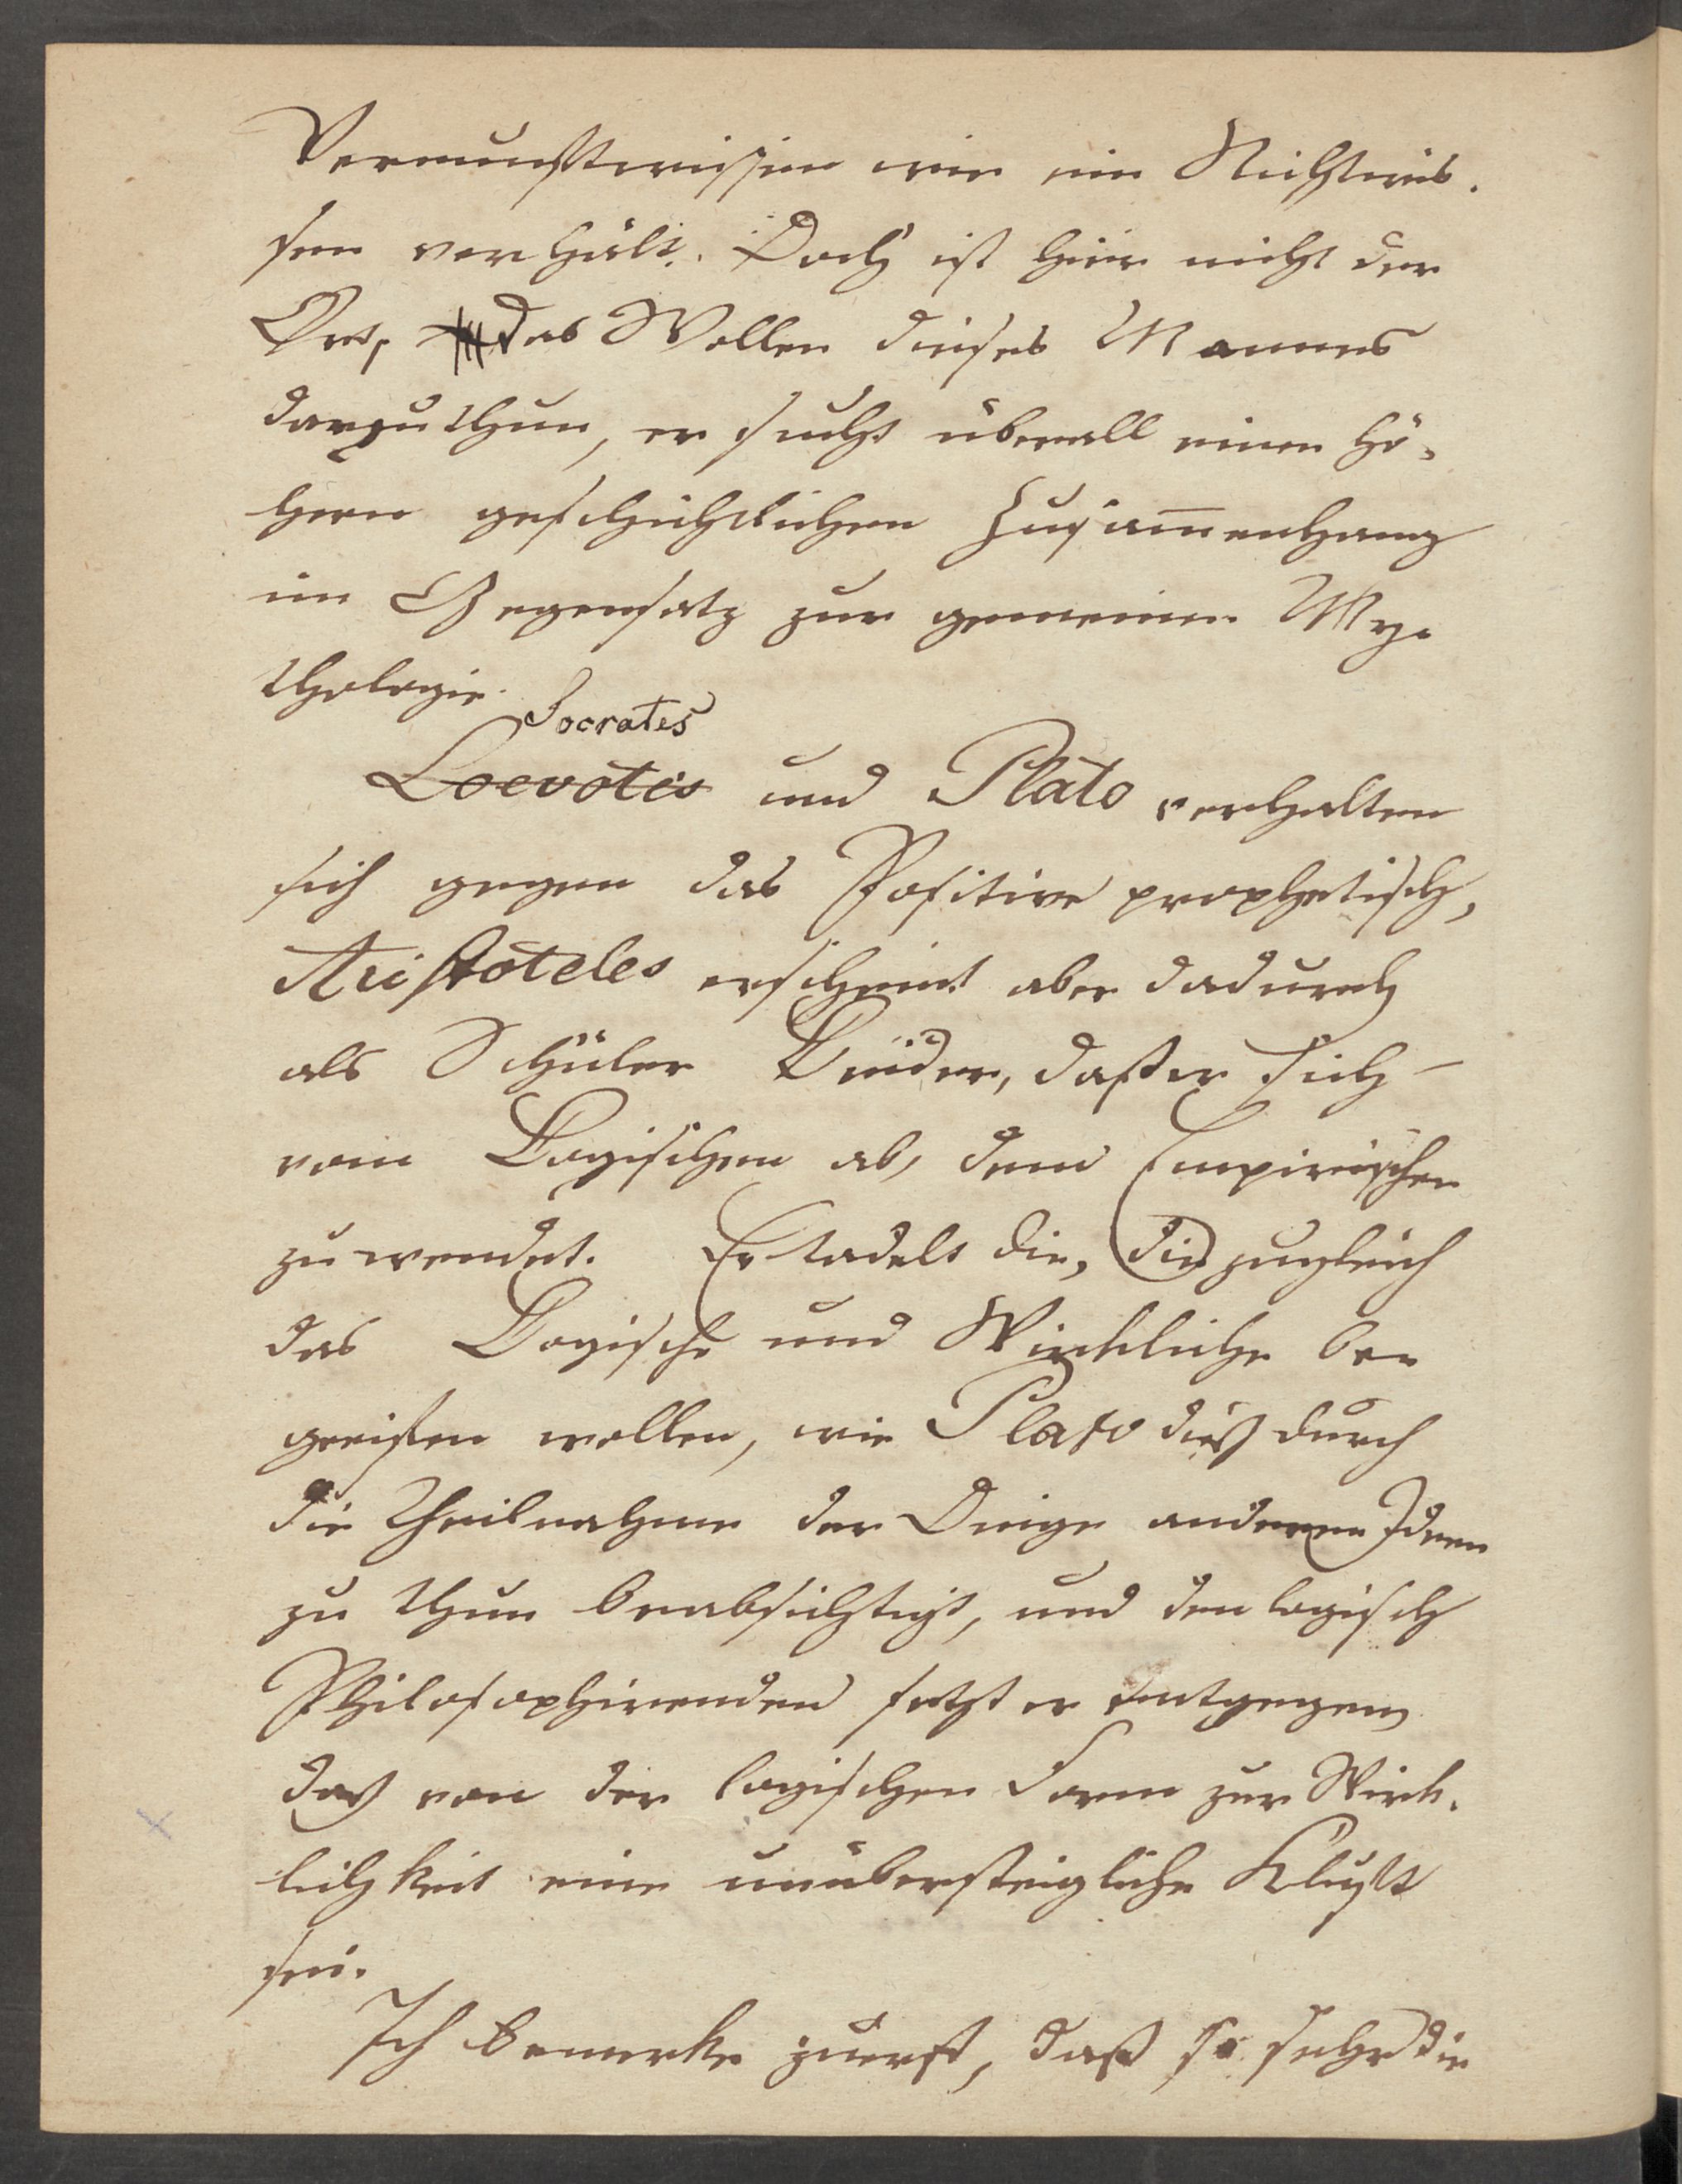 Vernunftwissen wie ein Nichtwis-
sen verhält. Doch ist hier nicht der
Ort, das Wollen dieses Mannes
darzuthun, er sucht überall einen hö-
hern geschichtlichen Zusam̅enhang
im Gegensatz zur gemeinen My-
thologie.
Socrates
Loevotes und Plato verhalten
sich gegen das Positive prophetisch,
Aristoteles erscheint aber dadurch
als Schüler Beider, daß er sich
vom Logischen ab, dem Empirischen
zuwendet. Er tadelt die, die zugleich
das Logische und Wirkliche be-
greifen wollen, wie Plato dieß durch
die Theilnahme der Dinge an deren Ideen
zu thun beabsichtigt, und den logisch
Philosophirenden setzt er entgegen
daß von der logischen Form zur Wirk-
lichkeit eine unübersteigliche Kluft
sei.
Ich bemerke zuerst, daß so sehr die